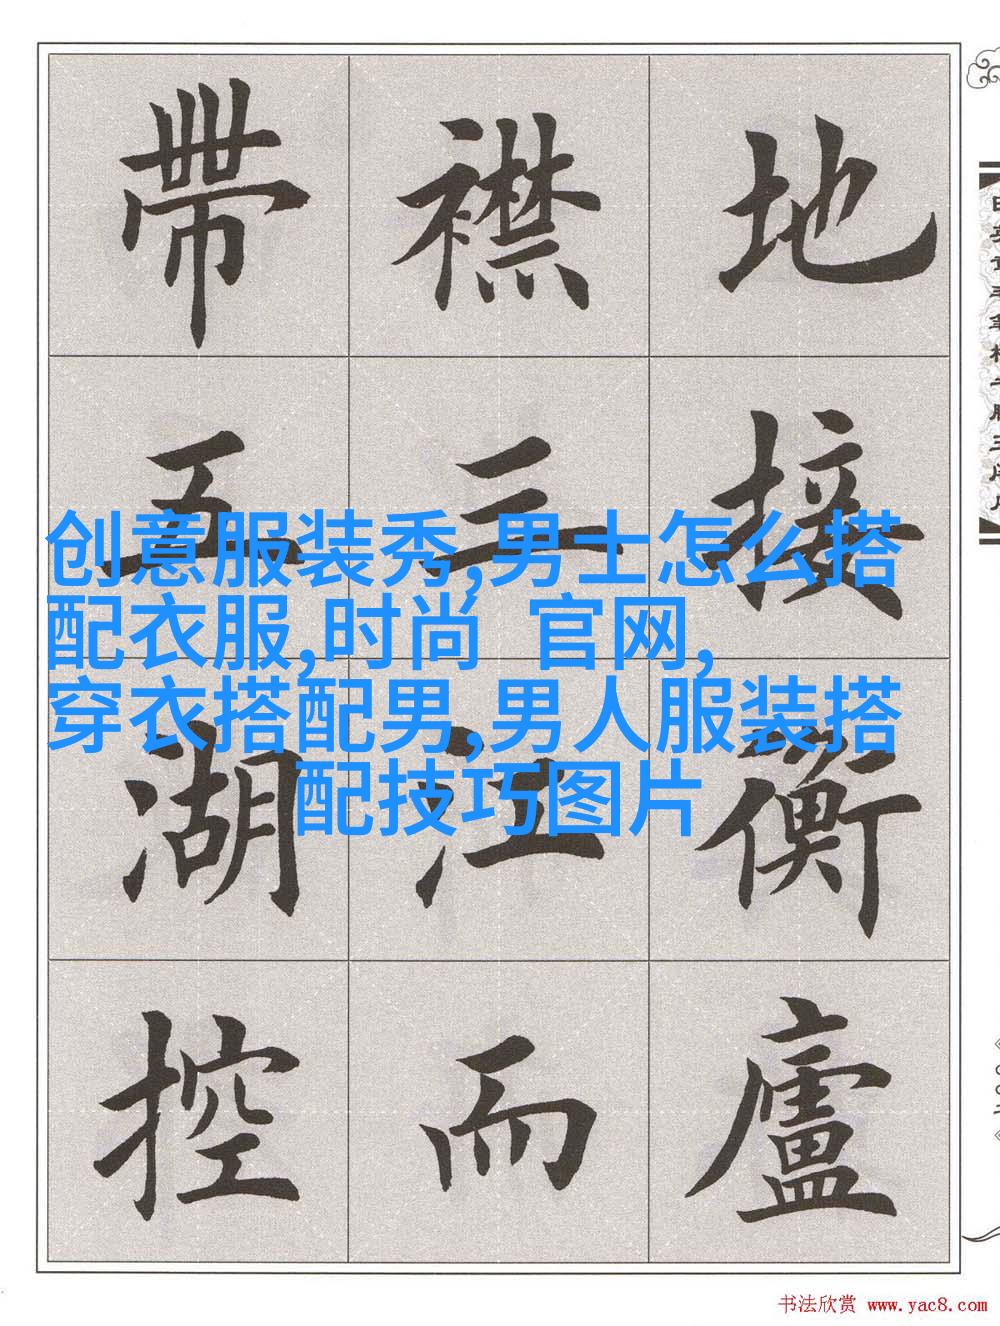 地接衡廬
襟三江而
帶五湖控
创意服装秀,男士怎么搭
配衣服,时尚 官网,
穿衣搭配男,男人服装搭
配技巧图片
书法欣赏 www.yac8.com